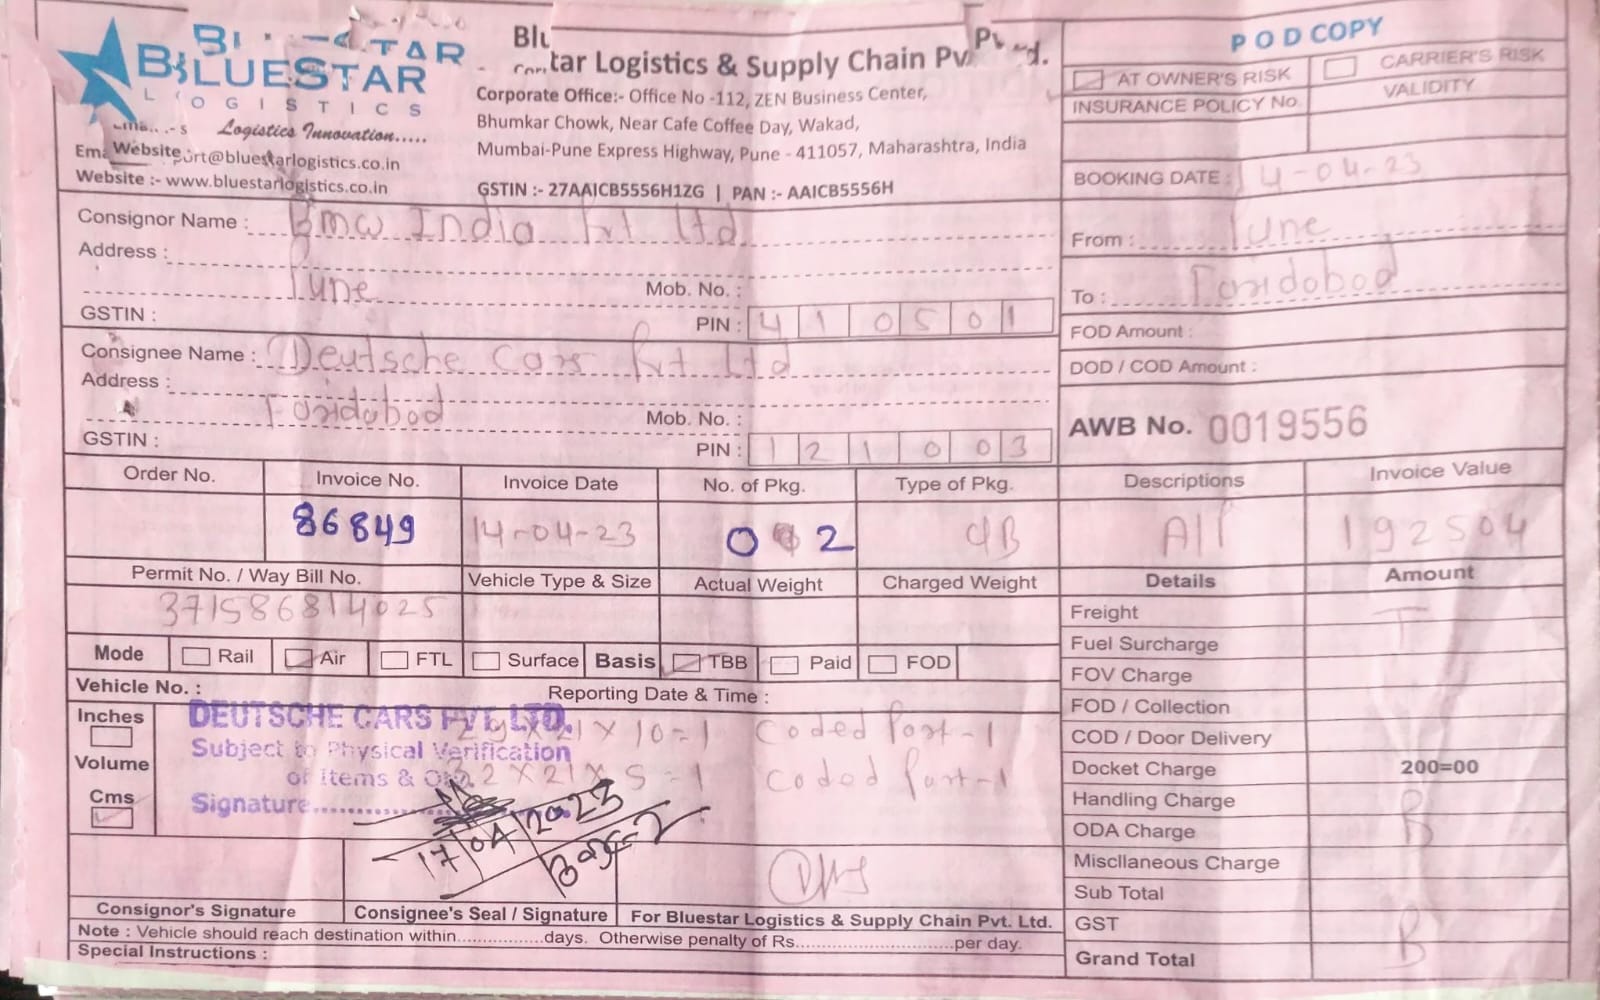 BLUESTAR
LOGISTICS
Logistics Innovation.....
Website
port@bluestarlogistics.co.in
Website :- www.bluestarlogistics.co.in
tar Logistics & Supply Chain Pv
Corporate Office:- Office No -112, ZEN Business Center,
Bhumkar Chowk, Near Cafe Coffee Day, Wakad,
Mumbai-Pune Express Highway, Pune - 411057, Maharashtra, India
GSTIN :- 27AAICB5556H1ZG | PAN :- AAICB5556H
POD COPY
AT OWNER'S RISK CARRIER'S RISK
INSURANCE POLICY No. VALIDITY
BOOKING DATE : 14-04-23
From : Pune
To : Faridabad
FOD Amount :
DOD / COD Amount :
AWB No. 0019556
Consignor Name : BMW India Pvt Ltd
Address :
Pune Mob. No. :
GSTIN : PIN : 410501
Consignee Name : Deutsche Cars Pvt Ltd
Address :
Faridabad Mob. No. :
GSTIN : PIN : 121003
Order No. Invoice No. Invoice Date No. of Pkg. Type of Pkg. Descriptions Invoice Value
86849 14-04-23 02 CB 192504
Permit No. / Way Bill No. Vehicle Type & Size Actual Weight Charged Weight Details Amount
371586814025
Freight T
Fuel Surcharge
FOV Charge
FOD / Collection
COD / Door Delivery
Docket Charge 200=00
Handling Charge B
ODA Charge
Miscllaneous Charge
Sub Total
GST
Grand Total B
Mode Rail Air FTL Surface Basis TBB Paid FOD
Vehicle No. : Reporting Date & Time :
Inches
Volume
Cms
DEUTSCHE CARS PVT. LTD.
Subject to Physical Verification
of Items & Qty.
Signature
X 21 X 10 = 1 Coded Part - 1
32 X 21 X 5 = 1 Coded Part - 1
17/04/2023
Box-2
Consignor's Signature Consignee's Seal / Signature For Bluestar Logistics & Supply Chain Pvt. Ltd.
Note : Vehicle should reach destination within.................days. Otherwise penalty of Rs..............................per day.
Special Instructions :